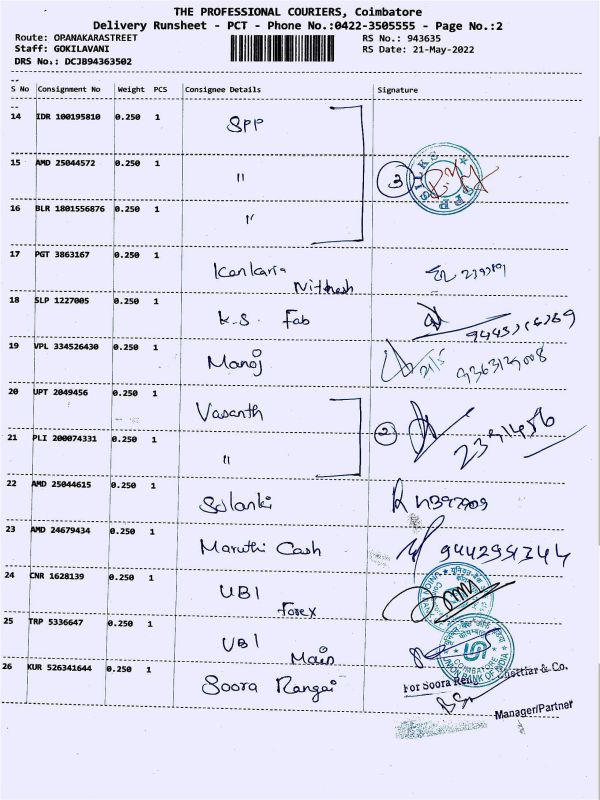 THE PROFESSIONAL COURIERS, Coimbatore
Delivery Runsheet - PCT - Phone No.:0422-3505555 - Page No.:2
Route: OPANAKARASTREET
RS No.: 943635
Staff: GOKILAVANI
RS Date: 21-May-2022
DRS No.: DCJB94363502
S No Consignment No Weight PCS Consignee Details Signature
14 IDR 100195810 0.250 1 SPP
15 AMD 25044572 0.250 1 " 3
SILKS SPP
16 BLR 1801556876 0.250 1 "
17 PGT 3863167 0.250 1 Kankaria
Nithesh
18 SLP 1227005 0.250 1 K.S. Fab
19 VPL 334526430 0.250 1 Manoj
20 UPT 2049456 0.250 1 Vasanth
21 PLI 200074331 0.250 1 " 2
22 AMD 25044615 0.250 1 Solanki
23 AMD 24679434 0.250 1 Maruthi Cash
24 CNR 1628139 0.250 1 UBI
Forex
25 TRP 5336647 0.250 1 UBI
Main
COIMBATORE
UNION BANK OF INDIA
26 KUR 526341644 0.250 1 Soora Rangai
For Soora Chettiar & Co.
Manager/Partner